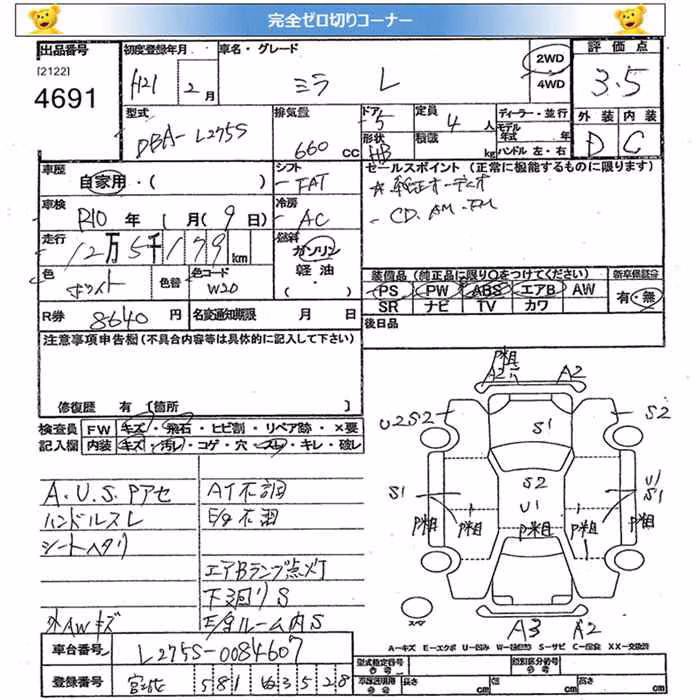 完全ゼロ切りコーナー
出品番号 初度登録年月 車名・グレード 2WD 4WD 評価点
[2122] 4691 H21 2月 ミラ L 3.5
型式 排気量 ドア 定員 ディーラー・並行 外装 内装
DBA-L275S 660cc 5 4人 モデル年式 年 D C
形状 HB 積載 kg ハンドル 左・右
車歴 シフト セールスポイント (正常に機能するものに限ります)
自家用・( ) FAT ☆純正オーディオ
車検 冷房 - CD.AM.FM
R10年 1月(9日) AC
走行 燃料
12万5千179km ガソリン 軽油・( )
色 色替 色コード 装備品(純正品に限り○をつけてください) 新車保証書
ホワイト W20 PS PW ABS エアB AW 有・無
SR ナビ TV カワ
R券 8640円 名変通知期限 月 日 後日品
注意事項申告欄(不具合内容等は具体的に記入して下さい)
修復歴 有 [箇所 ]
検査員 FW キズ・飛石・ヒビ割・リペア跡・×要
記入欄 内装 キズ・汚レ・コゲ・穴・スレ・キレ・破レ
A.U.S.Pアセ AT不調
ハンドルスレ E/g不調
シートヘタリ
エアBランプ点灯
下廻りS
外AWキズ E/gルーム内S
P粗
A2 A2
U2S2 S1 S2
S1 S2 U1 U1 S1
P粗 P粗 P粗 P粗 P粗
スペア A3 A2
A-キズ E-エクボ U-凹み W-補修跡 S-サビ C-腐食 XX-交換済
車台番号 L275S-0084607 型式指定番号 類別区分番号
登録番号 宮城 581 せ 3528 長さ cm 幅 cm 高さ cm